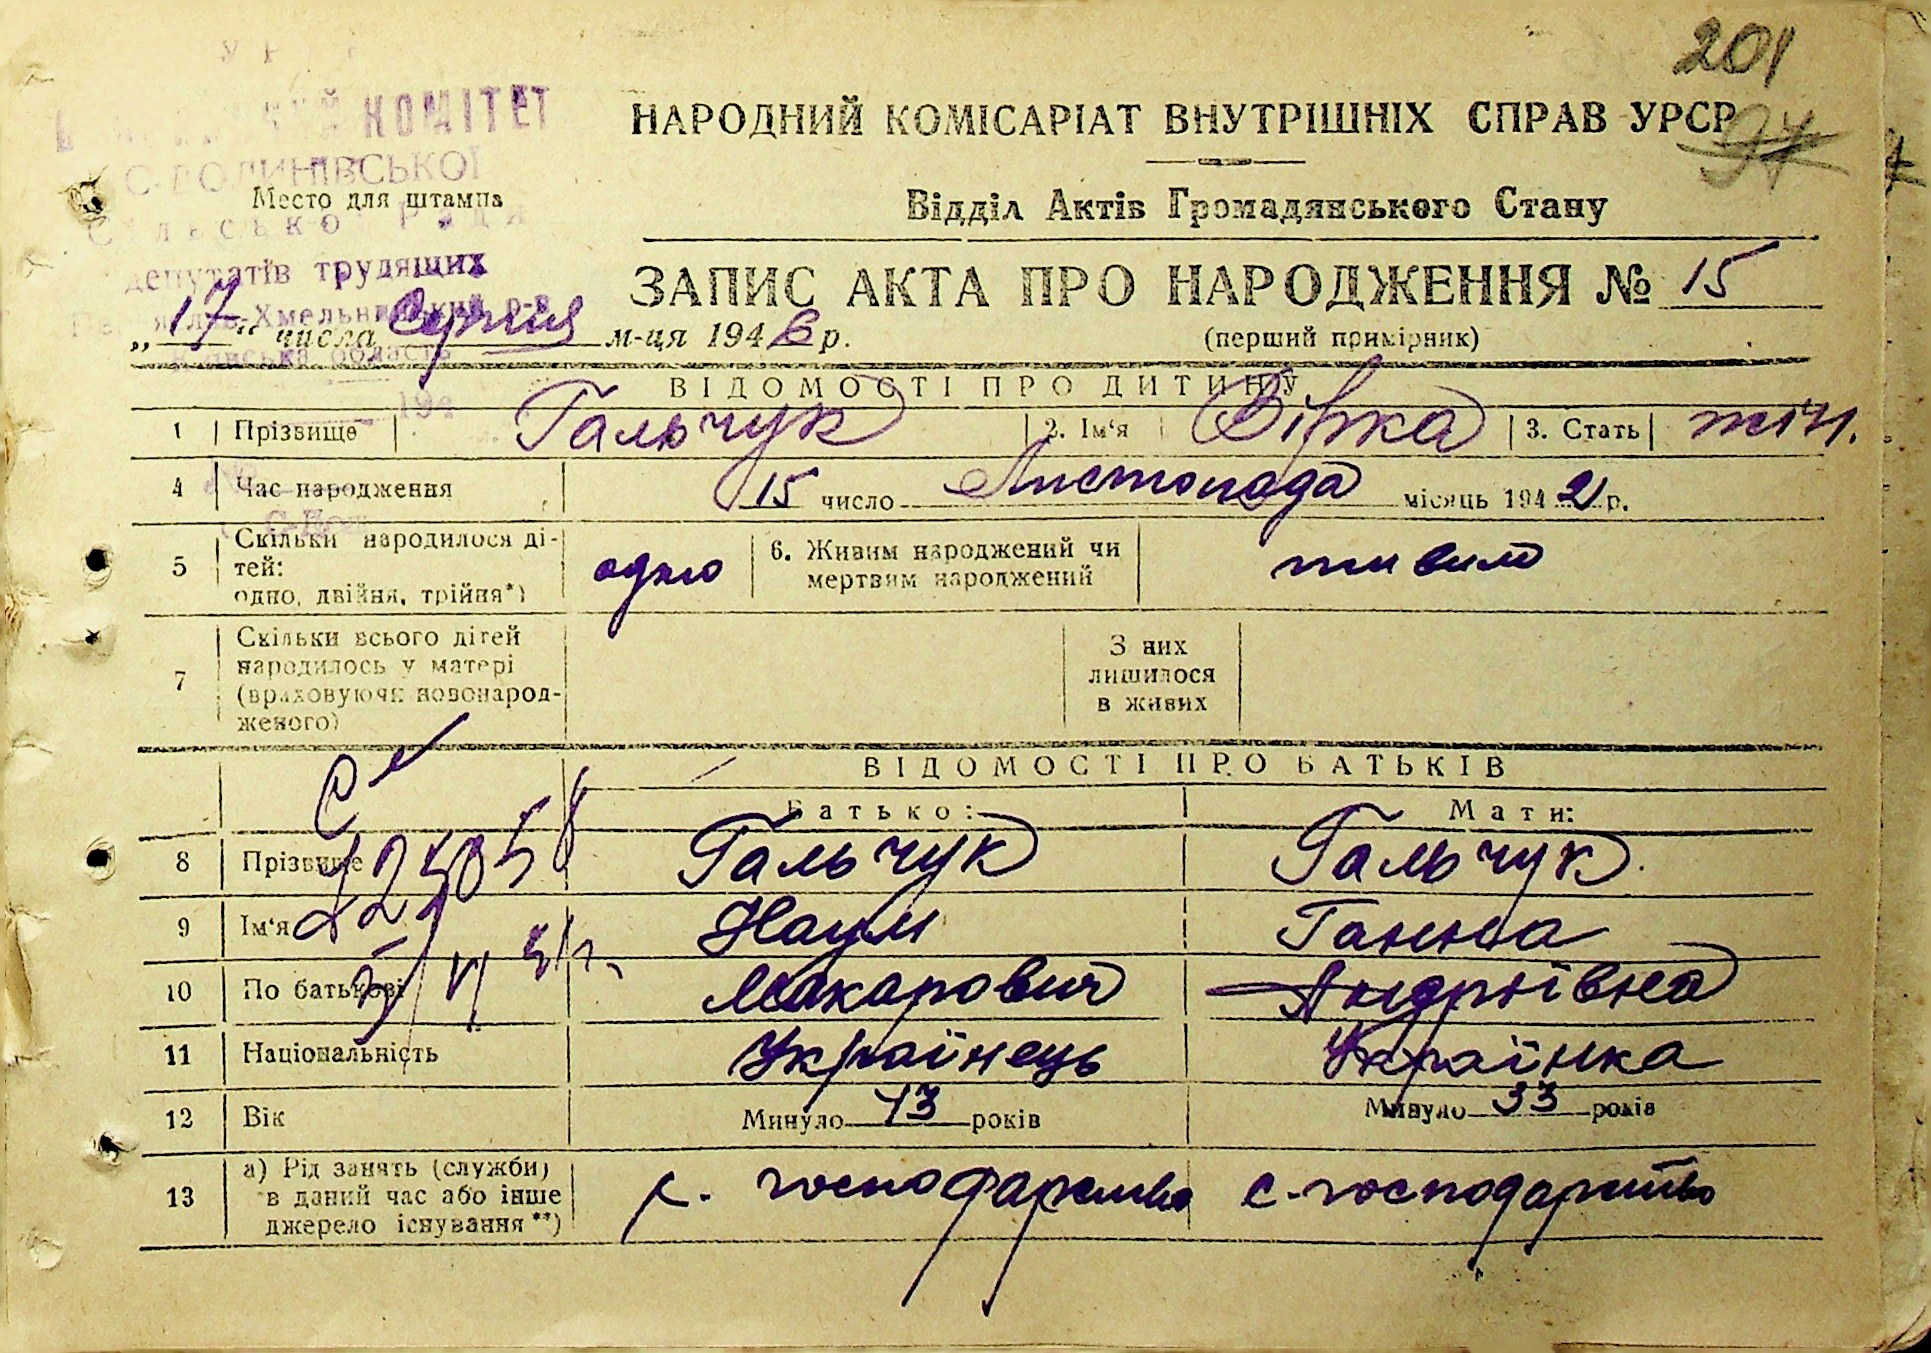 201
97
КОМІТЕТ
НАРОДНИЙ КОМІСАРІАТ ВНУТРІШНІХ СПРАВ УРСР
Место для штампа
Відділ Актів Громадянського Стану
депутатів трудящих
ЗАПИС АКТА ПРО НАРОДЖЕННЯ № 15
„17“ числа Серпня м-ця 1946 р.
(перший примірник)
ВІДОМОСТІ ПРО ДИТИНУ
1 Прізвище Гальчук 2. Ім'я Вірка 3. Стать жін.
4 Час народження 15 число Листопада місяць 1942 р.
5 Скільки народилося ді-
тей:
одно, двійня, трійня*)
одно
6. Живим народжений чи
мертвим народжений
живим
7 Скільки всього дітей
народилось у матері
(враховуючи новонарод-
женого)
З них
лишилося
в живих
ВІДОМОСТІ ПРО БАТЬКІВ
Батько: Мати:
8 Прізвище Гальчук Гальчук
9 Ім'я Наум Ганна
10 По батькові Макарович Андріївна
11 Національність Українець Українка
12 Вік Минуло 43 років Минуло 33 років
13 а) Рід занять (служби)
в даний час або інше
джерело існування **)
с. господарство с-господарство